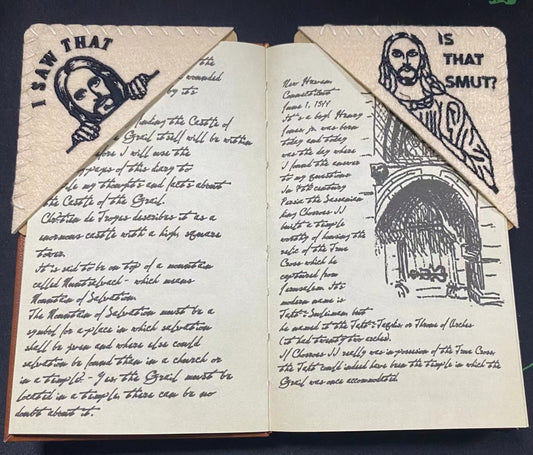 I SAW THAT
the
wounded
by its
finding the Castle of
Grail itself will be within
before I will use the
pages of this diary to
my thoughts and facts about
the Castle of the Grail.
Chretien de Troyes describes it as a
enormous castle with a high square
tower.
It is said to be on top of a mountain
called Muntsalvach - which means
Mountain of Salvation.
The Mountain of Salvation must be a
symbol for a place in which salvation
shall be given and where else could
salvation be found then in a church or
in a temple? - Yes the Grail must be
located in a temple, there can be no
doubt about it.
IS
THAT
SMUT?
New Haven
Connecticut
June 1, 1911
It's a boy! Henry
Jones jr. was born
today and today
was the day where
I found the answer
to my question
In 7th century
Persia the Sassanian
king Chosroes II
built a temple
worthy of housing the
relic of the True
Cross which he
captured from
Jerusalem. It's
modern name is
Takt-i-Suleiman but
he named it the Takt-i-Taqdis or Throne of Arches
(it had twenty two arches).
If Chosroes II really was in possession of the True Cross,
the Takt could indeed have been the temple in which the
Grail was once accommodated